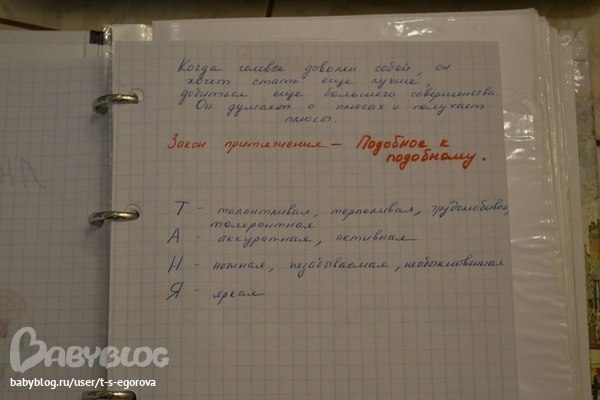 Когда человек доволен собой, он
хочет стать еще лучше,
добиться еще большего совершенства.
Он думает о плюсах и получает
плюсы.
Закон притяжения – Подобное к
подобному.
Т – талантливая, терпеливая, трудолюбивая,
толерантная
А – аккуратная, активная
Н – нежная, незабываемая, необыкновенная
Я – яркая
BABYBLOG
babyblog.ru/user/t-s-egorova